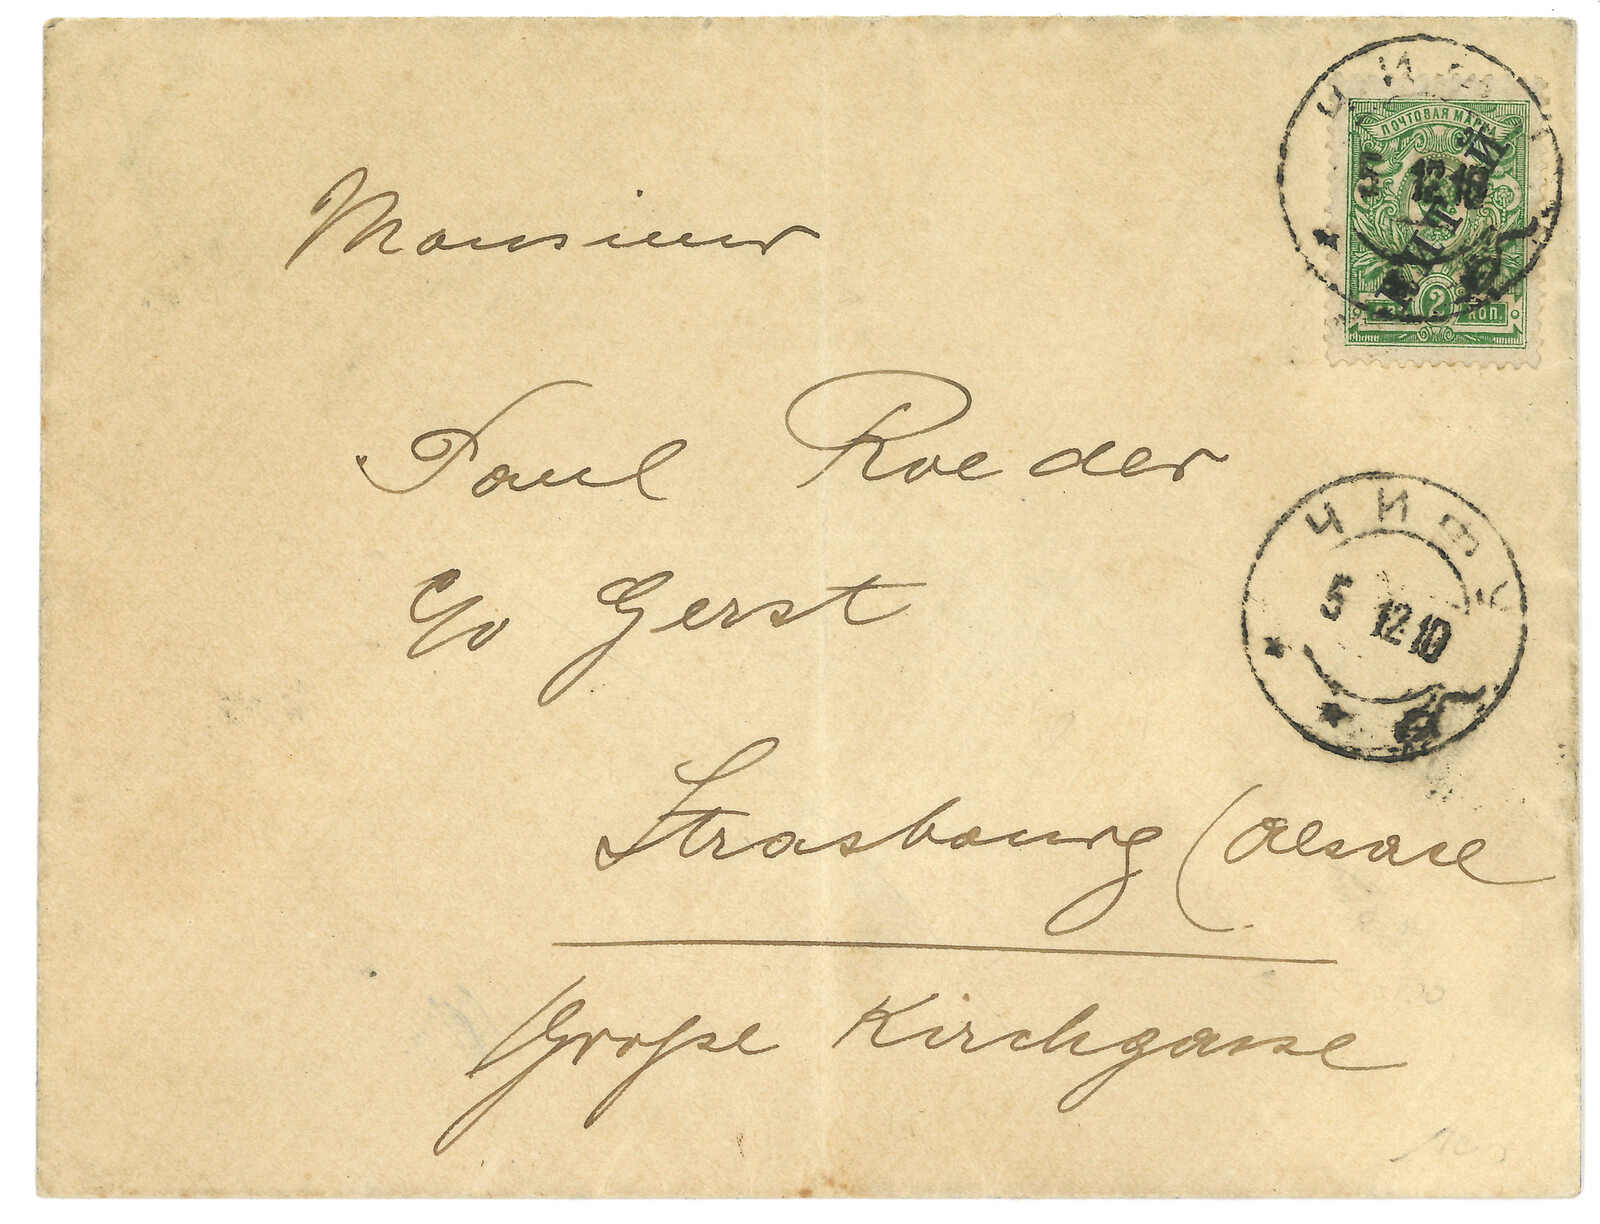 Monsieur
Paul Roeder
c/o Gerst
Strasbourg (Alsace
Große Kirchgasse
ПОЧТОВАЯ МАРКА
КИТАЙ
2 КОП.
5 12 10
ЧИФУ
5 12 10
б